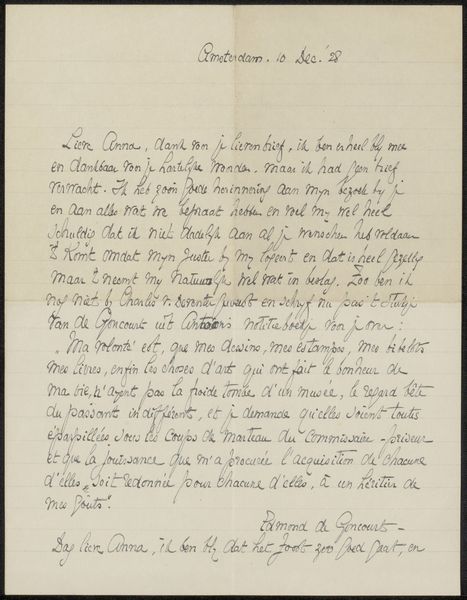 Amsterdam. 10 Dec. '28
Lieve Anna, dank voor je lieven brief, ik ben er heel bly mee
en dankbaar voor je hartelyke woorden, maar ik had geen brief
verwacht. Ik heb zoo'n goede herinnering aan myn bezoek by je
en aan alles wat we bepraat hebben en voel my wel heel
schuldig dat ik niet dadelyk aan al je wenschen heb voldaan
't Komt omdat myn zuster by my logeert en dat is heel gezellig
maar 't neemt my natuurlyk wel wat in beslag. Zoo ben ik
nog niet by Charles v. Deventer geweest en schryf nu pas 't stukje
van de Goncourt uit notitieboekje voor je over:
"Ma volonté est, que mes dessins, mes estampes, mes bibelots
mes livres, enfin les choses d'art qui ont fait le bonheur de
ma vie, n'ayent pas la froide tombe d'un musée, le regard bête
du passant indifférent, et je demande qu'elles soient toutes
éparpillées sous les coups de marteau du commissaire-priseur
et que la jouissance que m'a procurée l'acquisition de chacune
d'elles, soit redonnée pour chacune d'elles, à un héritier de
mes goûts".
Edmond de Goncourt -
Dag lieve Anna, ik ben bly dat het Joost zoo goed gaat, en